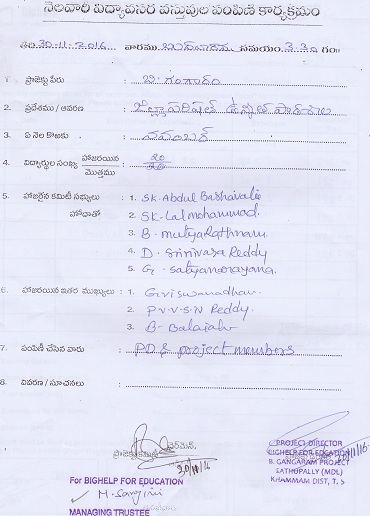 నెలవారీ విద్యావసర వస్తువుల పంపిణీ కార్యక్రమం
తేది 30-11-2016 వారము బుధవారము సమయం 3.30 గం॥
1. ప్రాజెక్టు పేరు : బి. గంగారం
2. ప్రదేశము / ఆవరణ : జిల్లా పరిషత్ ఉన్నత పాఠశాల
3. ఏ నెల కొఱకు : నవంబర్
4. విద్యార్థుల సంఖ్య హాజరయిన / మొత్తము : 20
5. హాజరైన కమిటీ సభ్యులు హోదాతో : 1. SK. Abdul Bashavalie
2. SK. Lal mohammad.
3. B. mutyaRathnam.
4. D. Srinivasa Reddy
5. G. satyanarayana.
6. హాజరయిన ఇతర ముఖ్యులు : 1. G.viswanadham.
2. P.V.V.S.N Reddy.
3. B- Balaiah
7. పంపిణీ చేసిన వారు : P.D. & project members
8. వివరణ / సూచనలు :
ప్రాజెక్టు కమిటీ ఛైర్మన్.
For BIGHELP FOR EDUCATION
MANAGING TRUSTEE
PROJECT DIRECTOR
BIGHELP FOR EDUCATION
B. GANGARAM PROJECT
SATHUPALLY (MDL)
KHAMMAM DIST, T. S